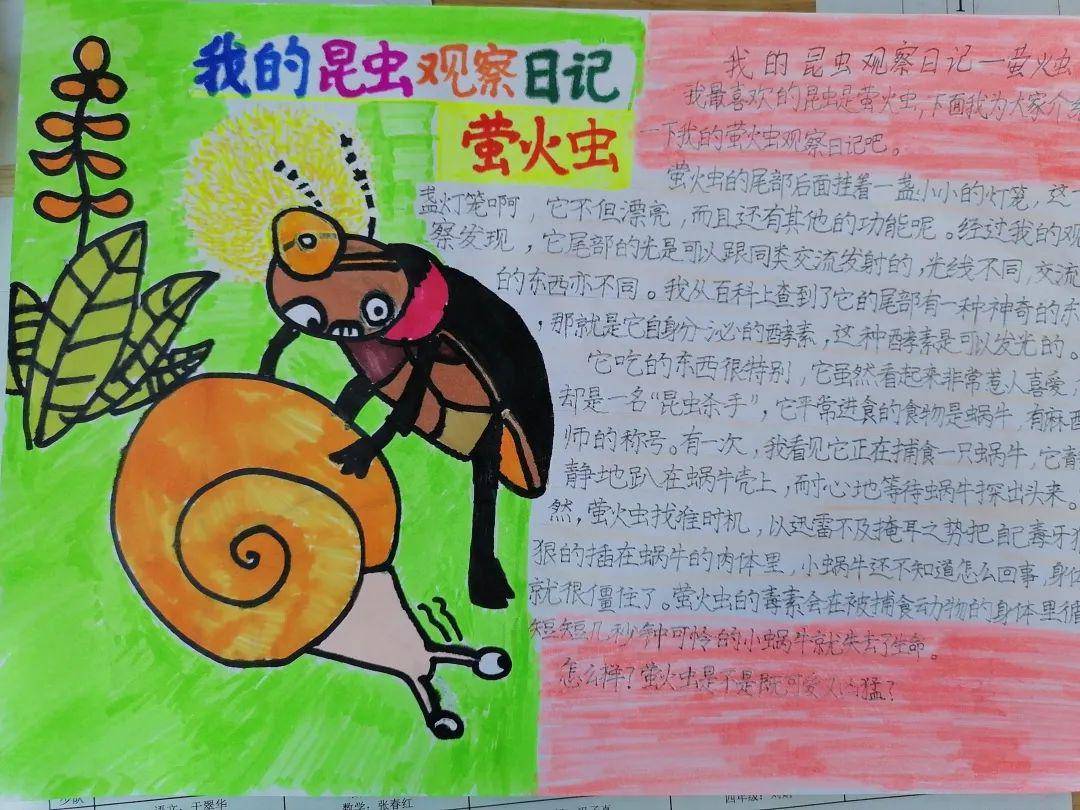 我的昆虫观察日记
萤火虫
我的昆虫观察日记—萤火虫
我最喜欢的昆虫是萤火虫，下面我为大家介绍
一下我的萤火虫观察日记吧。
萤火虫的尾部后面挂着一盏小小的灯笼，这一
盏灯笼啊，它不但漂亮，而且还有其他的功能呢。经过我的观
察发现，它尾部的光是可以跟同类交流发射的，光线不同，交流
的东西亦不同。我从百科上查到了它的尾部有一种神奇的东
，那就是它自身分泌的酵素，这种酵素是可以发光的。
它吃的东西很特别，它虽然看起来非常惹人喜爱，
却是一名“昆虫杀手”，它平常进食的食物是蜗牛，有麻醉
师的称号。有一次，我看见它正在捕食一只蜗牛，它静
静地趴在蜗牛壳上，耐心地等待蜗牛探出头来。
然，萤火虫找准时机，以迅雷不及掩耳之势把自己毒牙狠
狠的插在蜗牛的肉体里，小蜗牛还不知道怎么回事，身体
就很僵住了。萤火虫的毒素会在被捕食动物的身体里循
短短几秒钟可怜的小蜗牛就失去了生命。
怎么样？萤火虫是不是既可爱又凶猛？
语文：于翠华
数学：张春红